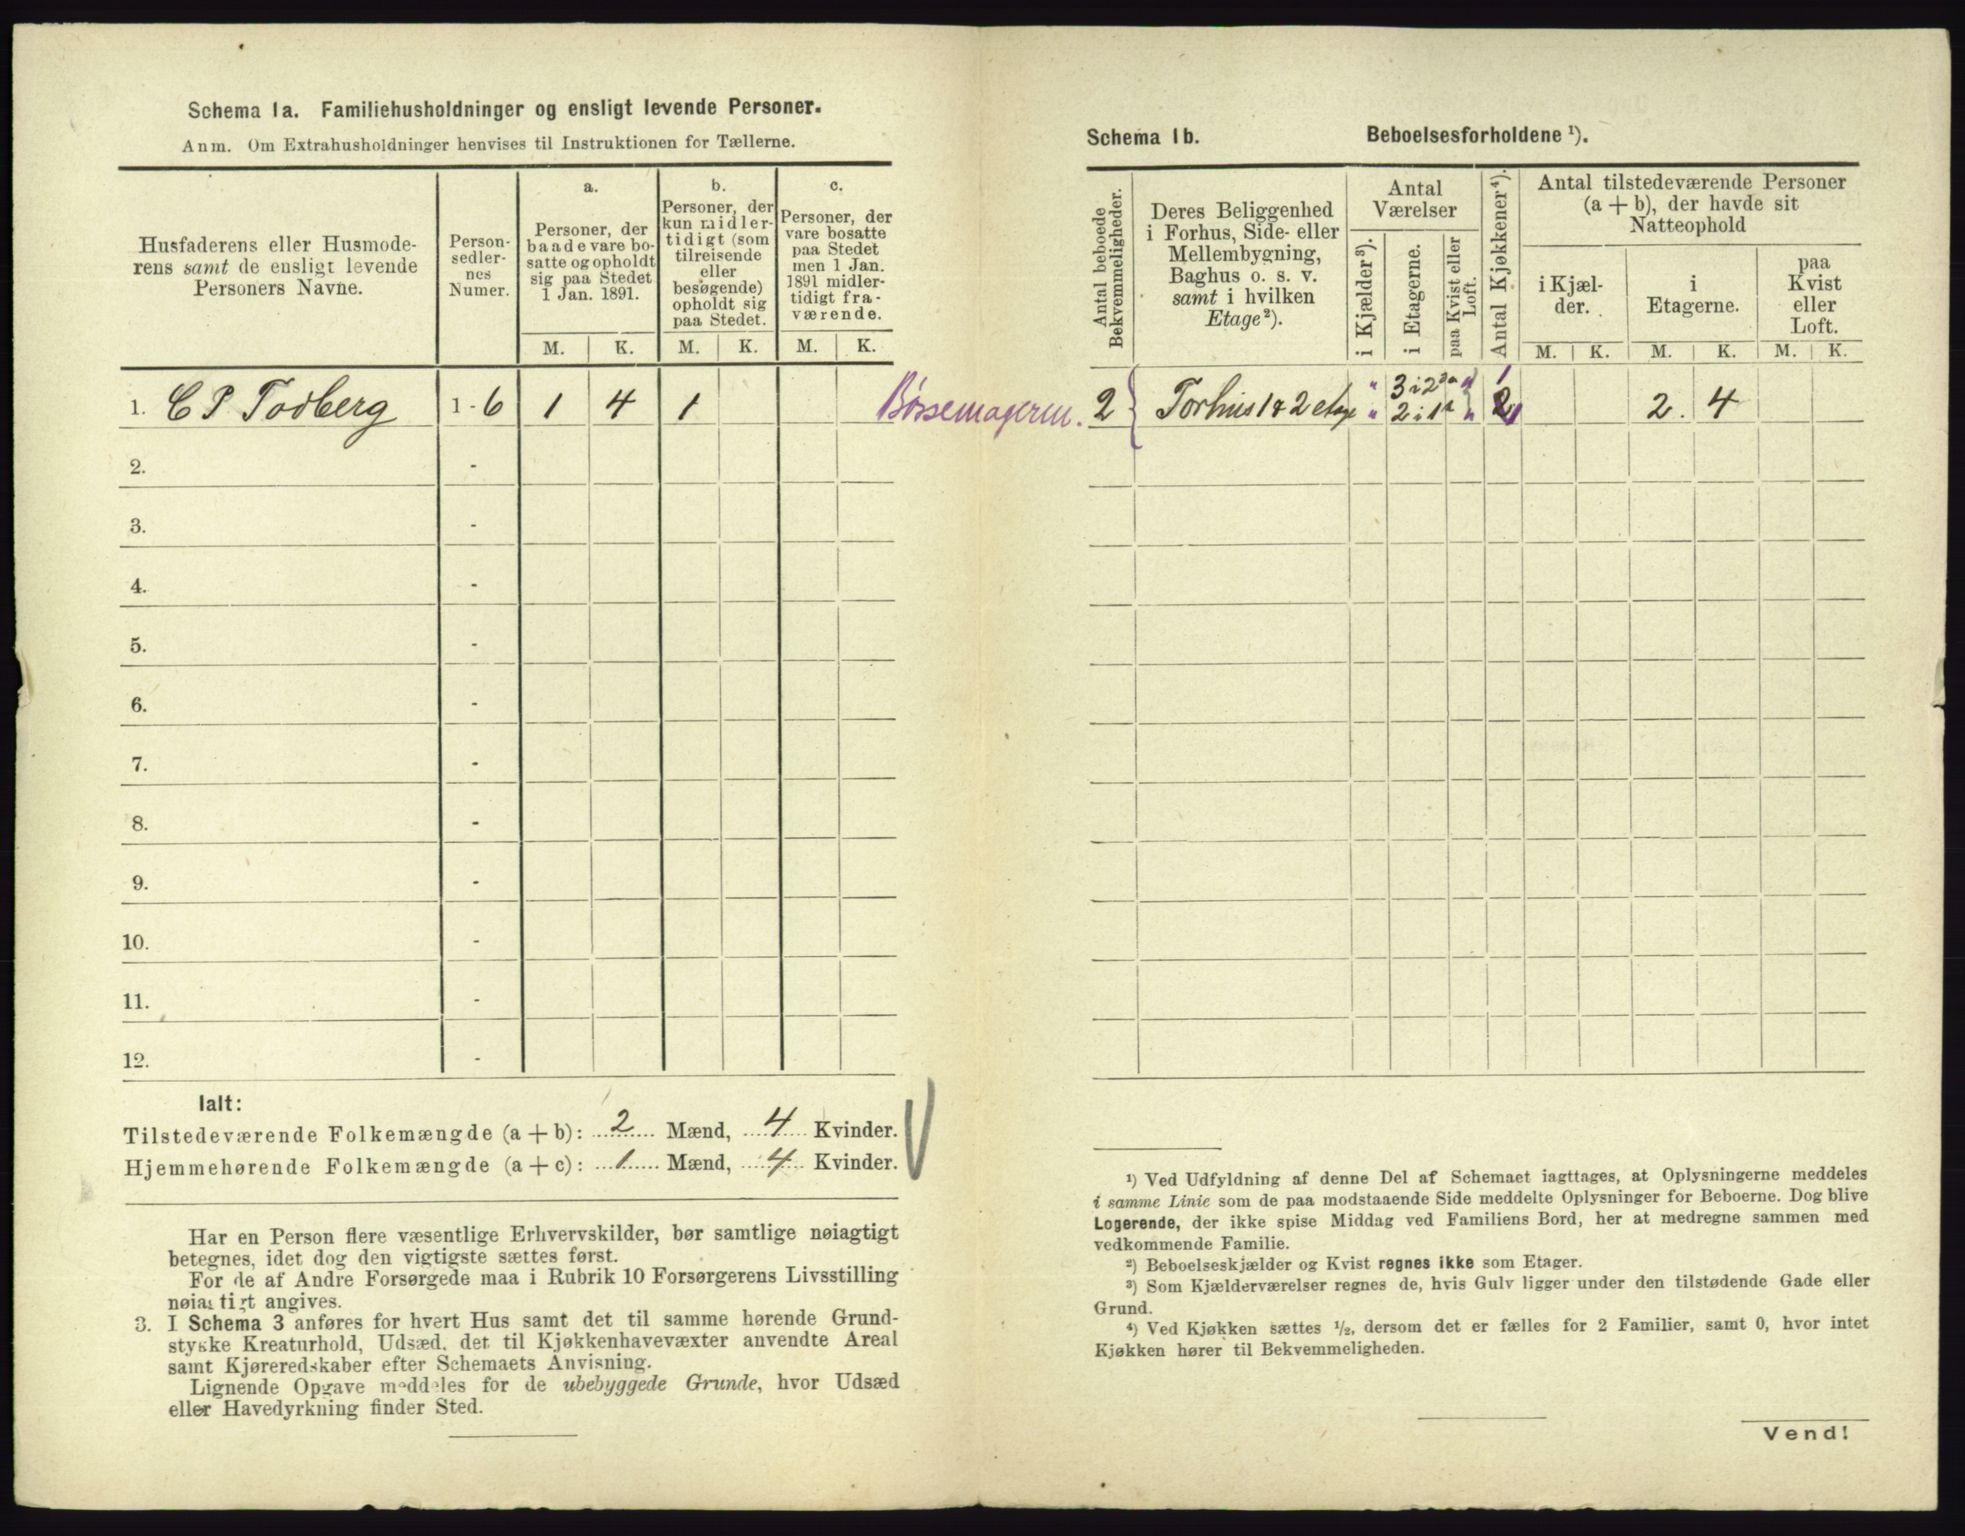 Schema 1a. Familiehusholdninger og ensligt levende Personer.
Anm. Om Extrahusholdninger henvises til Instruktionen for Tællerne.
Husfaderens eller Husmode-
rens samt de ensligt levende
Personers Navne.
Person-
sedler-
nes
Numer.
a.
Personer, der
baade vare bo-
satte og opholdt
sig paa Stedet
1 Jan. 1891.
b.
Personer, der
kun midler-
tidigt (som
tilreisende
eller
besøgende)
opholdt sig
paa Stedet.
c.
Personer, der
vare bosatte
paa Stedet
men 1 Jan.
1891 midler-
tidigt fra-
værende.
M. K. M. K. M. K.
1. C P Todberg 1 - 6 1 4 1
2. -
3. -
4. -
5. -
6. -
7. -
8. -
9. -
10. -
11. -
12. -
Ialt:
Tilstedeværende Folkemængde (a + b): 2 Mænd, 4 Kvinder.
Hjemmehørende Folkemængde (a + c): 1 Mænd, 4 Kvinder.
Har en Person flere væsentlige Erhvervskilder, bør samtlige nøiagtigt
betegnes, idet dog den vigtigste sættes først.
For de af Andre Forsørgede maa i Rubrik 10 Forsørgerens Livsstilling
nøiagtigt angives.
3. I Schema 3 anføres for hvert Hus samt det til samme hørende Grund-
stykke Kreaturhold, Udsæd, det til Kjøkkenhavevæxter anvendte Areal
samt Kjøreredskaber efter Schemaets Anvisning.
Lignende Opgave meddeles for de ubebyggede Grunde, hvor Udsæd
eller Havedyrkning finder Sted.
Schema 1b. Beboelsesforholdene ¹).
Antal beboede
Bekvemmeligheder.
Deres Beliggenhed
i Forhus, Side- eller
Mellembygning,
Baghus o. s. v.
samt i hvilken
Etage²).
Antal
Værelser
i Kjælder³).
i Etagerne.
paa Kvist eller
Loft.
Antal Kjøkkener⁴).
Antal tilstedeværende Personer
(a + b), der havde sit
Natteophold
i Kjæl-
der.
i
Etagerne.
paa
Kvist
eller
Loft.
M. K. M. K. M. K.
Børsemageren. 2 Forhus 1 & 2 etage " 3 i 2 " 1
" 2 i 1 " 2 2. 4
¹) Ved Udfyldning af denne Del af Schemaet iagttages, at Oplysningerne meddeles
i samme Linie som de paa modstaaende Side meddelte Oplysninger for Beboerne. Dog blive
Logerende, der ikke spise Middag ved Familiens Bord, her at medregne sammen med
vedkommende Familie.
²) Beboelseskjælder og Kvist regnes ikke som Etager.
³) Som Kjælderværelser regnes de, hvis Gulv ligger under den tilstødende Gade eller
Grund.
⁴) Ved Kjøkken sættes ½, dersom det er fælles for 2 Familier, samt 0, hvor intet
Kjøkken hører til Bekvemmeligheden.
Vend!